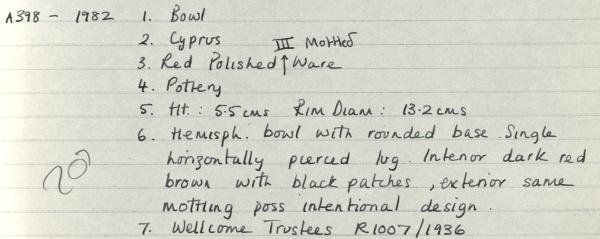 A398 - 1982 1. Bowl
2. Cyprus III Mottled
3. Red Polished ↑ Ware
4. Pottery
5. Ht.: 5.5 cms Rim Diam: 13.2 cms
6. Hemisph. bowl with rounded base. Single
horizontally pierced lug. Interior dark red
brown with black patches, exterior same
mottling poss intentional design.
7. Wellcome Trustees R1007/1936